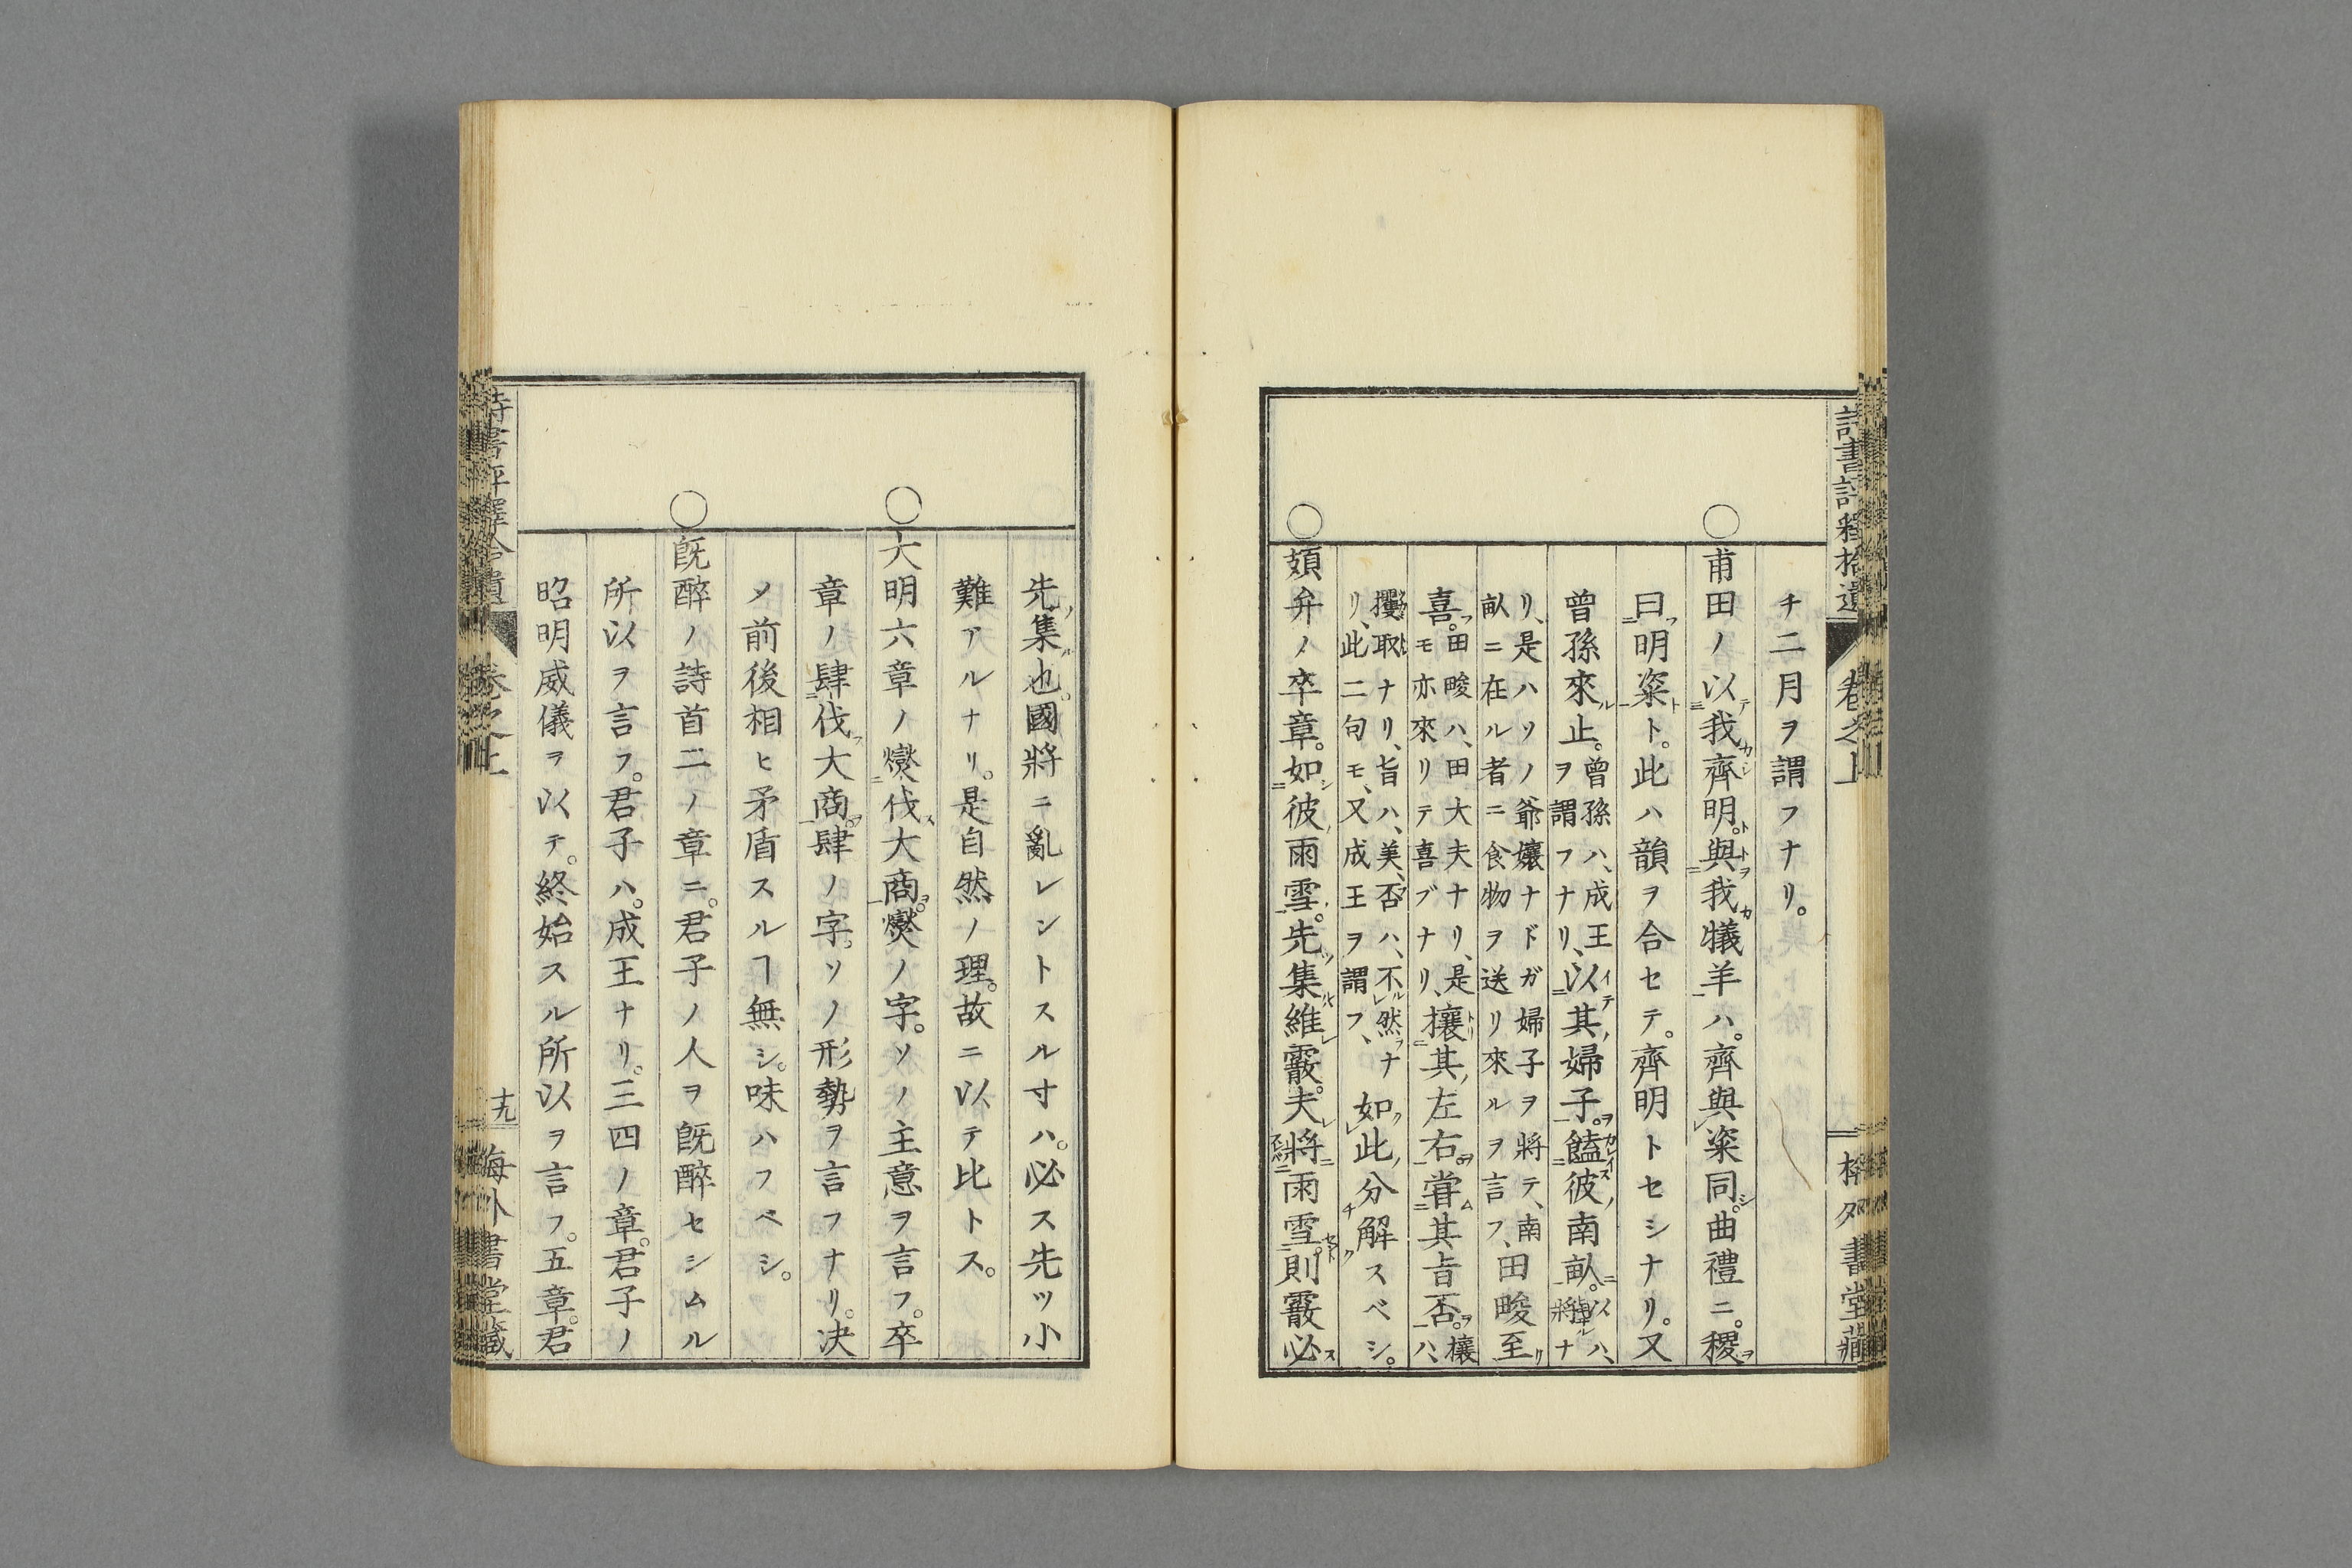 チ二月ヲ謂フナリ。
○甫田ノ以我齊明。與我犠羊ハ。齊與粢同。曲禮ニ。稷
曰明粢ト。此ハ韻ヲ合セテ。齊明トセシナリ。又
曾孫來止。曾孫ハ、成王ヲ謂フナリ、以其婦子。饁彼南畝。以ハ、將ナ
リ、是ハソノ爺孃ナドガ婦子ヲ將テ、南畝ニ在ル者ニ食物ヲ送リ來ルヲ言フ、田畯至
喜。田畯ハ、田大夫ナリ、是モ亦來リテ喜ブナリ、攘其左右。嘗其旨否。攘ハ、
攫取ナリ、旨ハ、美、否ハ、不然ナリ、此二句モ、又成王ヲ謂フ、如此分解スベシ。
○頍弁ノ卒章。如彼雨雪。先集維霰。夫將雨雪。則霰必
先集也。國將ニ亂レントスル寸ハ。必ス先ツ小
難アルナリ。是自然ノ理。故ニ以テ比トス。
○大明六章ノ燮伐大商。燮ノ字。ソノ主意ヲ言フ。卒
章ノ肆伐大商。肆ノ字。ソノ形勢ヲ言フナリ。决
メ前後相ヒ矛盾スルヿ無シ。味ハフベシ。
○旣醉ノ詩首二ノ章ニ。君子ノ人ヲ旣醉セシムル
所以ヲ言フ。君子ハ。成王ナリ。三四ノ章。君子ノ
昭明威儀ヲ以テ。終始スル所以ヲ言フ。五章。君
卷之上
十九
海外書堂藏